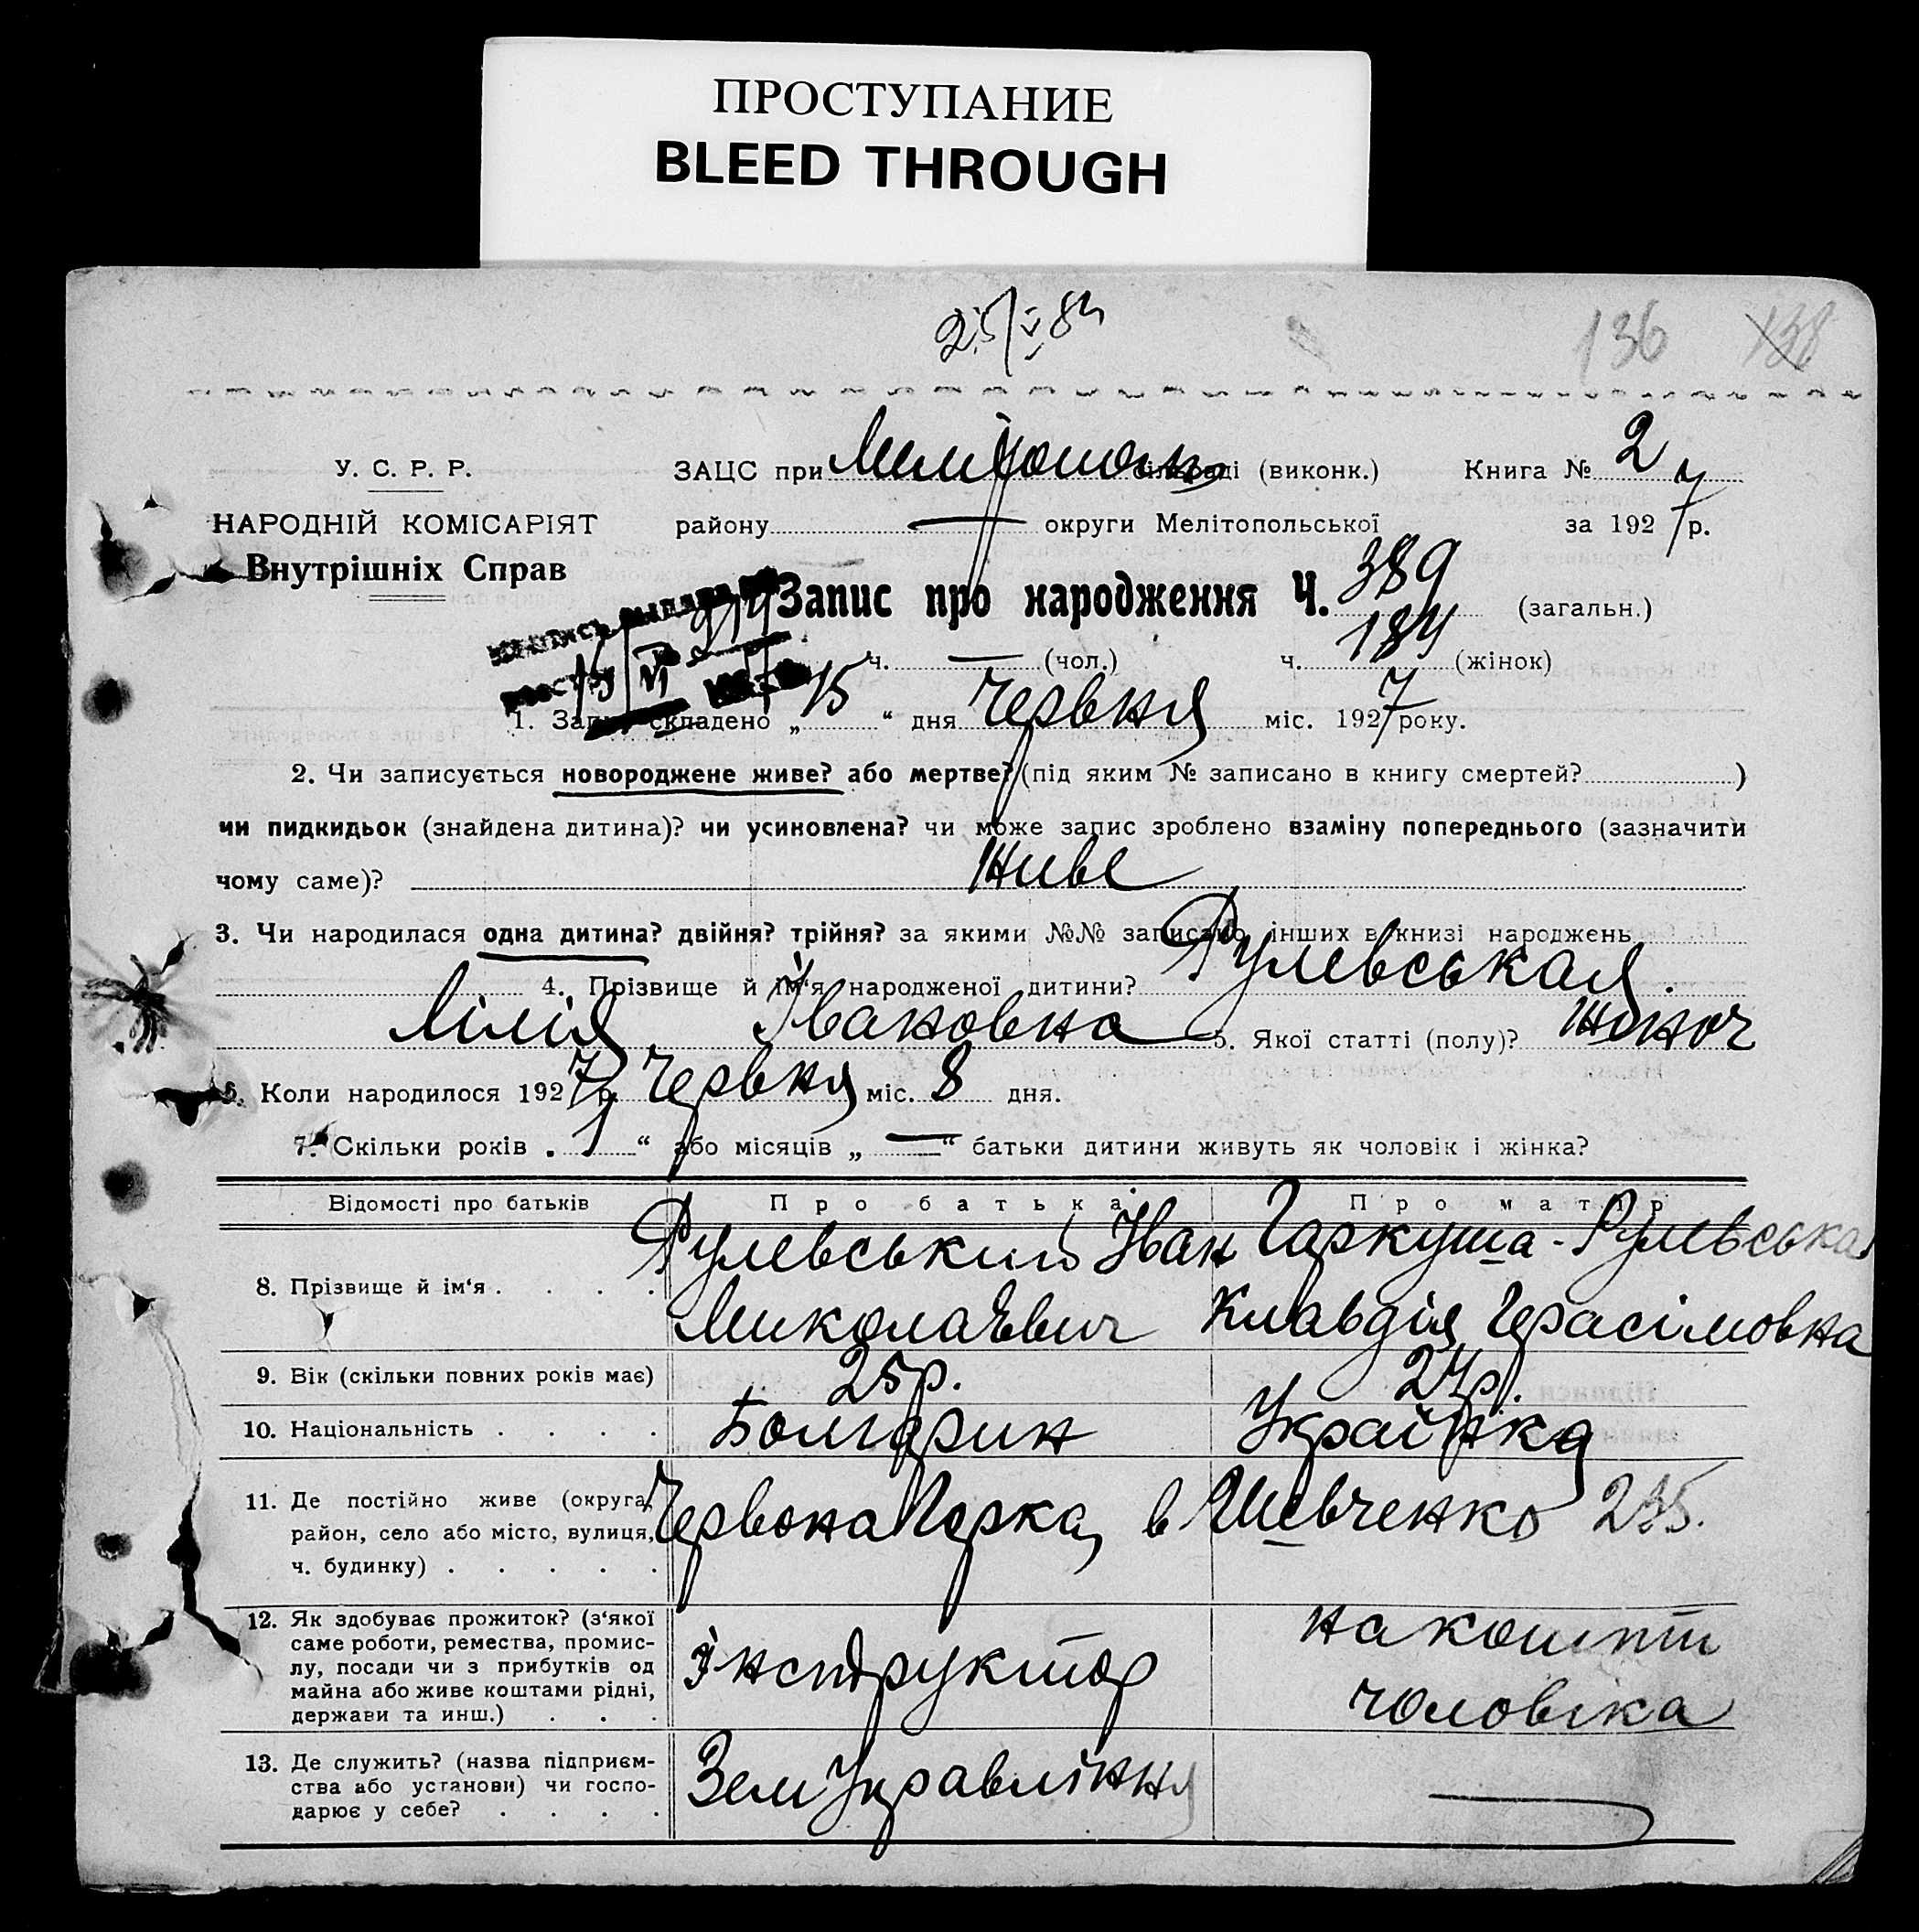 ПРОСТУПАНИЕ
BLEED THROUGH
136 138
У. С. Р. Р. ЗАЦС при Мелітополь сільраді (виконк.) Книга № 2
НАРОДНІЙ КОМІСАРІЯТ району — округи Мелітопольської за 1927 р.
Внутрішніх Справ
Запис про народження Ч. 389 (загальн.)
ч. — (чол.) ч. 184 (жінок)
1. Запис складено „15“ дня Червня міс. 1927 року.
2. Чи записується новороджене живе? або мертве? (під яким № записано в книгу смертей? )
чи пидкидьок (знайдена дитина)? чи усиновлена? чи може запис зроблено взаміну попереднього (зазначити
чому саме)? Живе
3. Чи народилася одна дитина? двійня? трійня? за якими №№ записано інших в книзі народжень
4. Прізвище й ім‘я народженої дитини? Рулевськая
Лілія Івановна 5. Якої статті (полу)? жіноч
6. Коли народилося 1927 р. Червня міс. 8 дня.
7. Скільки років „1“ або місяців „—“ батьки дитини живуть як чоловік і жінка?
Відомості про батьків Про батька Про матір
8. Прізвище й ім‘я . . . . Рулевський Іван Гаркуша-Рулевська
Миколаєвич Клавдія Герасімовна
9. Вік (скільки повних років має) 25р. 24р.
10. Національність . . . . Болгарин Українка
11. Де постійно живе (округа, Червона Горка, в Шевченко 235.
район, село або місто, вулиця,
ч. будинку) . . . . .
12. Як здобуває прожиток? (з‘якої на кошти
саме роботи, ремества, промис-
лу, посади чи з прибутків од інструктор
майна або живе коштами рідні, чоловіка
держави та инш.) . . .
13. Де служить? (назва підприєм- ЗемУправління —
ства або установи) чи госпо-
дарює у себе? . . . .